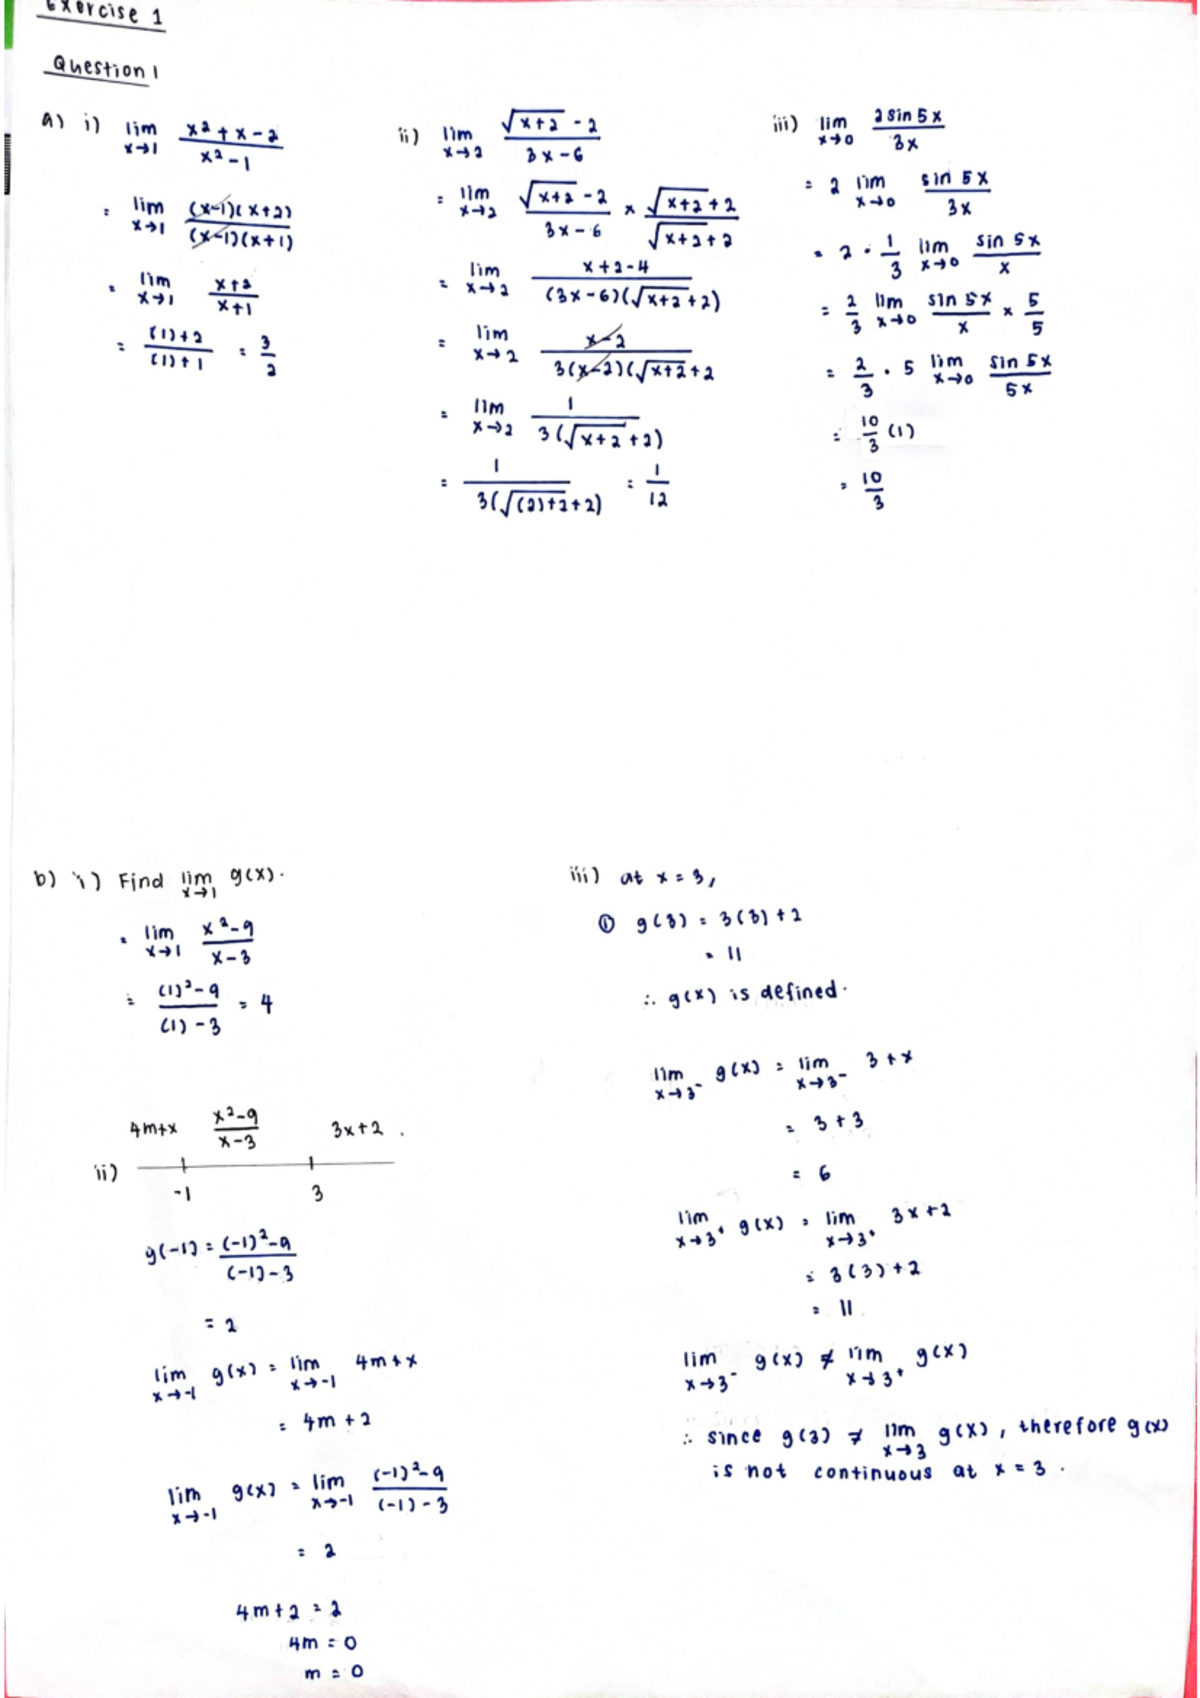 Exercise 1
Question 1
a) i) lim x→1 (x² + x - 2)/(x² - 1)
= lim x→1 ((x-1)(x+2))/((x-1)(x+1))
= lim x→1 (x+2)/(x+1)
= ((1)+2)/((1)+1) = 3/2
ii) lim x→2 (√(x+2) - 2)/(3x-6)
= lim x→2 (√(x+2) - 2)/(3x-6) × (√(x+2) + 2)/(√(x+2) + 2)
= lim x→2 (x+2-4)/((3x-6)(√(x+2) + 2))
= lim x→2 (x-2)/(3(x-2)(√(x+2) + 2
= lim x→2 1/(3(√(x+2) + 2))
= 1/(3(√((2)+2) + 2)) = 1/12
iii) lim x→0 (2 sin 5x)/(3x)
= 2 lim x→0 (sin 5x)/(3x)
= 2 · 1/3 lim x→0 (sin 5x)/x
= 2/3 lim x→0 (sin 5x)/x × 5/5
= 2/3 · 5 lim x→0 (sin 5x)/(5x)
= 10/3 (1)
= 10/3
b) i) Find lim x→1 g(x).
= lim x→1 (x²-9)/(x-3)
= ((1)²-9)/((1)-3) = 4
4m+x (x²-9)/(x-3) 3x+2 .
ii) -1 3
g(-1) = ((-1)²-9)/((-1)-3)
= 2
lim x→-1 g(x) = lim x→-1 4m+x
= 4m+2
lim x→-1 g(x) = lim x→-1 ((-1)²-9)/((-1)-3)
= 2
4m+2 = 2
4m = 0
m = 0
iii) at x = 3,
① g(3) = 3(3)+2
= 11
∴ g(x) is defined.
lim x→3⁻ g(x) = lim x→3⁻ 3+x
= 3+3
= 6
lim x→3⁺ g(x) = lim x→3⁺ 3x+2
= 3(3)+2
= 11
lim x→3⁻ g(x) ≠ lim x→3⁺ g(x)
∴ since g(3) ≠ lim x→3 g(x), therefore g(x)
is not continuous at x = 3.